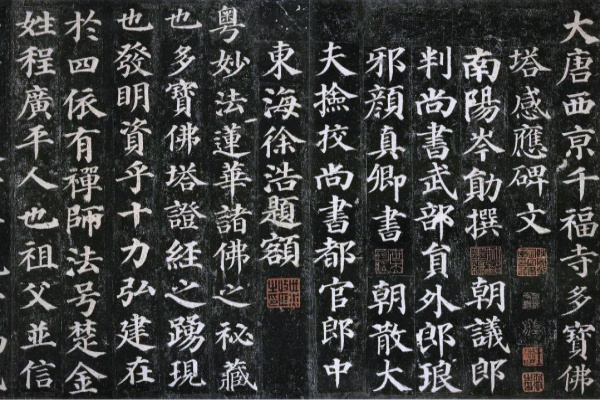 大唐西京千福寺多寶佛
塔感應碑文
南陽岑勛撰 朝議郎
判尚書武部員外郎琅
邪顏真卿書 朝散大
夫撿挍尚書都官郎中
東海徐浩題額
粵妙法蓮華諸佛之秘藏
也多寶佛塔證經之踴現
也發明資乎十力弘建在
於四依有禪師法号楚金
姓程廣平人也祖父並信